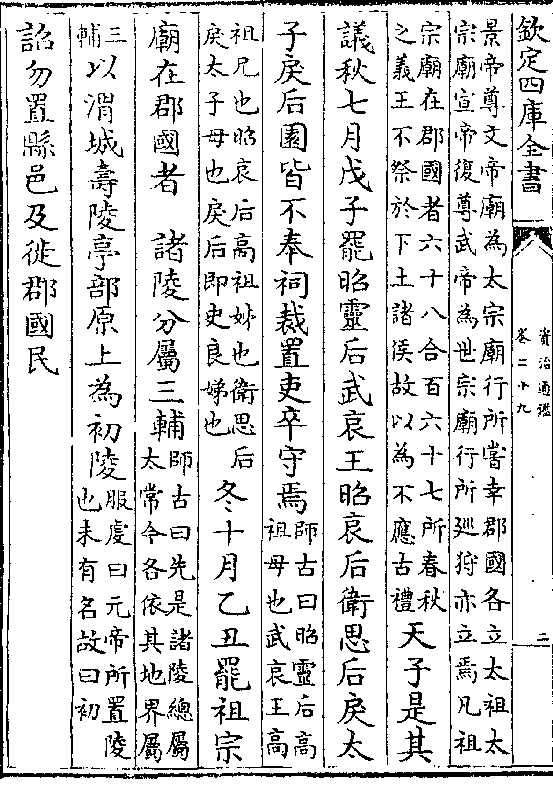 欽定四庫全書
資治通鑑
卷二十九
二
景帝尊文帝廟為太宗廟行所嘗幸郡國各立太祖太
宗廟宣帝復尊武帝為世宗廟行所廵狩亦立焉凡祖
宗廟在郡國者六十八合百六十七所春秋
之義王不祭於下土諸侯故以為不應古禮
天子是其
議秋七月戊子罷昭靈后武哀王昭哀后衛思后戾太
子戾后園皆不奉祠裁置吏卒守焉
師古曰昭靈后高
祖母也武哀王高
祖兄也昭哀后高祖姊也衛思后
戾太子母也戾后即史良娣也
冬十月乙丑罷祖宗
廟在郡國者 諸陵分屬三輔
師古曰先是諸陵總屬
太常今各依其地界屬
三
輔
以渭城壽陵亭部原上為初陵
服虔曰元帝所置陵
也未有名故曰初
詔勿置縣邑及徙郡國民